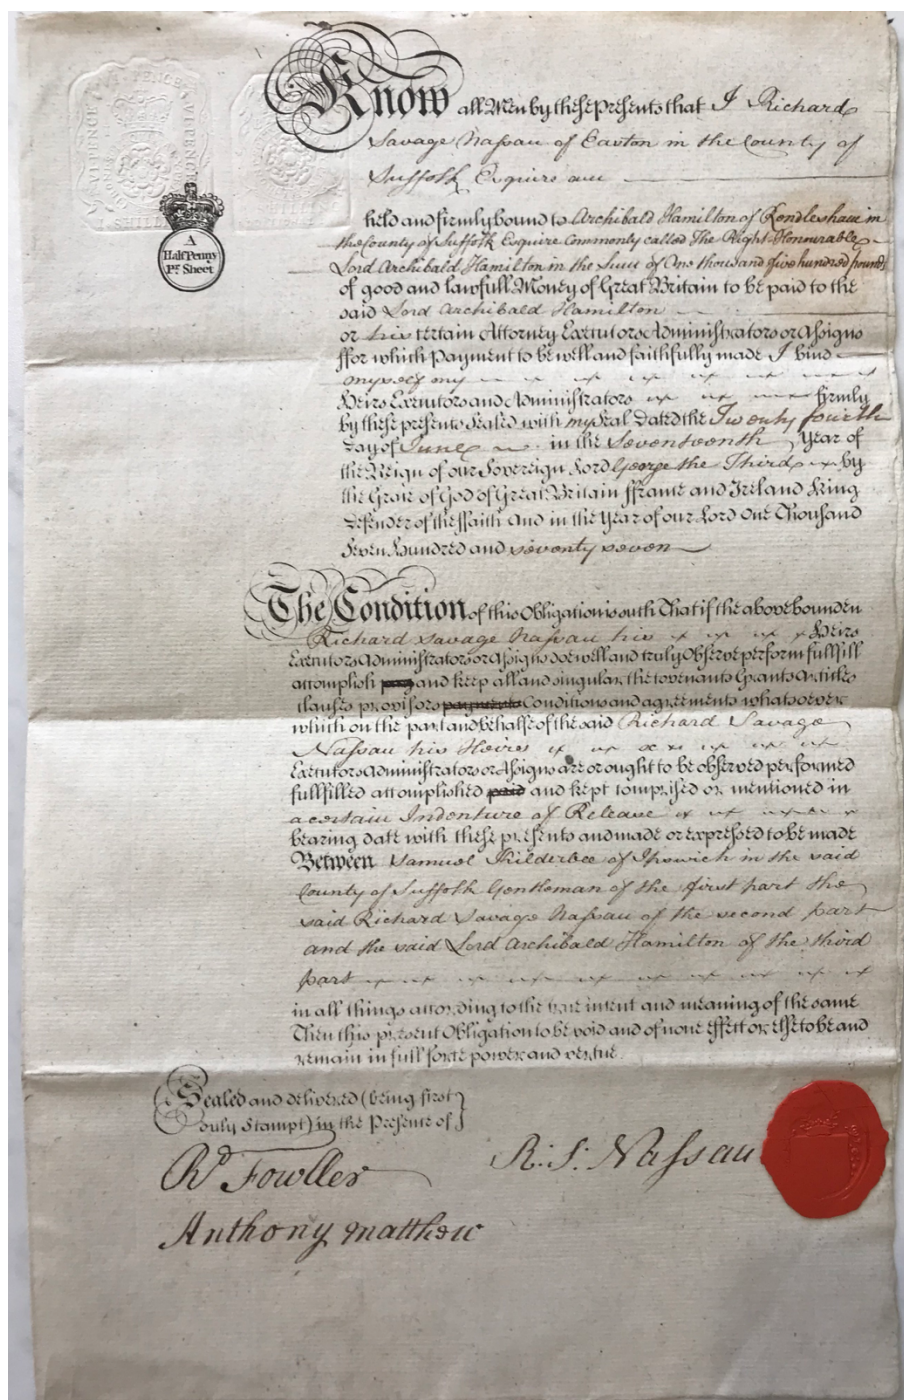 SIX PENCE
VI PENCE
SHILL
A
Half Penny
Pr. Sheet
Know all Men by these Presents that I Richard
Savage Nassau of Easton in the County of
Suffolk Esquire am
held and firmly bound to Archibald Hamilton of Rendlesham in
the County of Suffolk Esquire commonly called The Right Honourable
Lord Archibald Hamilton in the Sum of One thousand five hundred pounds
of good and lawfull Money of Great Britain to be paid to the
said Lord Archibald Hamilton
or his certain Attorney Executors Administrators or Assigns
ffor which Payment to be well and faithfully made I bind
myself my
Heirs Executors and Administrators firmly
by these presents Sealed with my Seal Dated the Twenty fourth
day of June in the Seventeenth Year of
the Reign of our Sovereign Lord George the Third by
the Grace of God of Great Britain ffrance and Ireland King
Defender of the ffaith And in the Year of our Lord One Thousand
Seven Hundred and seventy seven
The Condition of this Obligation is such That if the above bounden
Richard Savage Nassau his Heirs
Executors Administrators or Assigns do well and truly Observe perform fullfill
accomplish pay and keep all and singular the Covenants Grants Articles
clauses provisoes payments Conditions and agreements whatsoever
which on the part and behalfe of the said Richard Savage
Nassau his Heires
Executors Administrators or Assigns are or ought to be observed performed
fullfilled accomplished paid and kept comprised or mentioned in
a certain Indenture of Release
bearing date with these presents and made or expressed to be made
Between Samuel Kilderbee of Ipswich in the said
County of Suffolk Gentleman of the first part the
said Richard Savage Nassau of the second part
and the said Lord Archibald Hamilton of the third
part
in all things according to the true intent and meaning of the same
Then this present Obligation to be void and of none effect or else to be and
remain in full force power and vertue.
Sealed and delivered (being first
duly Stampt) in the Presence of
Rd Fowller
R: S: Nassau
Anthony Matthew